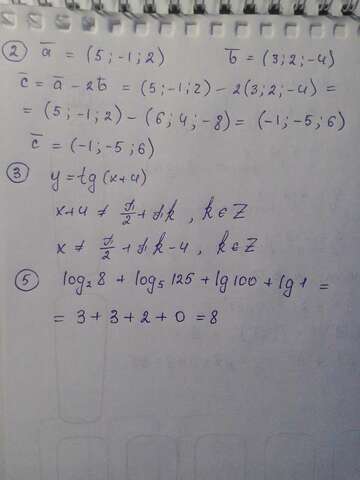 ② a̅ = (5; -1; 2) b̅ = (3; 2; -4)
c̅ = a̅ - 2b̅ = (5; -1; 2) - 2(3; 2; -4) =
= (5; -1; 2) - (6; 4; -8) = (-1; -5; 6)
c̅ = (-1; -5; 6)
③ y = tg(x+4)
x+4 ≠ π/2 + πk, k ∈ Z
x ≠ π/2 + πk - 4, k ∈ Z
⑤ log₂8 + log₅125 + lg100 + lg1 =
= 3 + 3 + 2 + 0 = 8